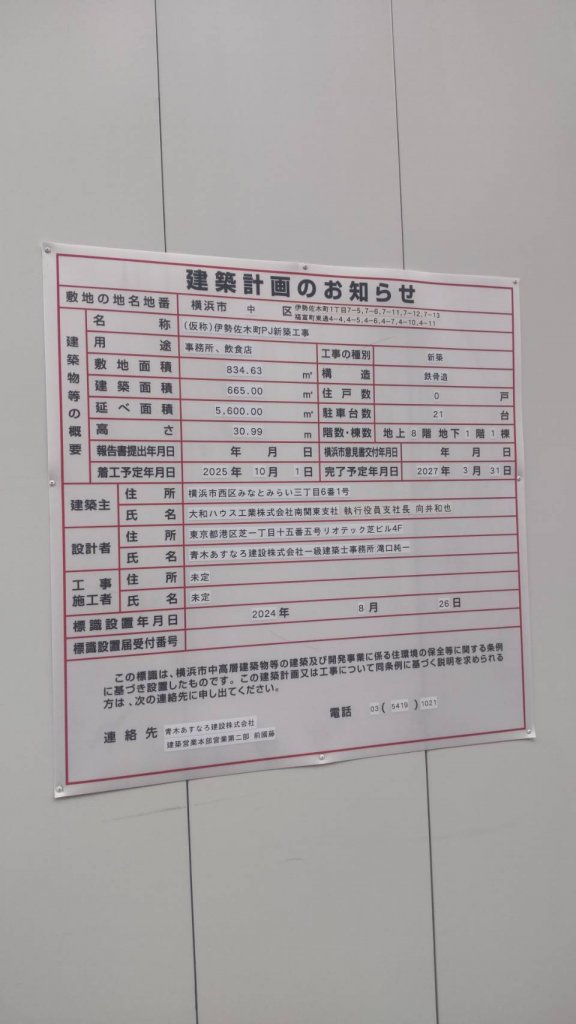 建築計画のお知らせ
敷地の地名地番 横浜市 中 区 伊勢佐木町1丁目7-5,7-6,7-11,7-12,7-13
福富町東通4-4,4-5,4-6,4-7,4-10,4-11
建築物等の概要
名称 (仮称)伊勢佐木町PJ新築工事
用途 事務所、飲食店 工事の種別 新築
敷地面積 834.63 ㎡ 構造 鉄骨造
建築面積 665.00 ㎡ 住戸数 0 戸
延べ面積 5,600.00 ㎡ 駐車台数 21 台
高さ 30.99 m 階数・棟数 地上8階 地下1階 1棟
報告書提出年月日 年 月 日 横浜市意見書交付年月日 年 月 日
着工予定年月日 2025年 10月 1日 完了予定年月日 2027年 3月 31日
建築主 住所 横浜市西区みなとみらい三丁目6番1号
氏名 大和ハウス工業株式会社南関東支社 執行役員支社長 向井和也
設計者 住所 東京都港区芝一丁目十五番五号リオテック芝ビル4F
氏名 青木あすなろ建設株式会社一級建築士事務所 滝口純一
工事施工者 住所 未定
氏名 未定
標識設置年月日 2024年 8月 26日
標識設置届受付番号
この標識は、横浜市中高層建築物等の建築及び開発事業に係る住環境の保全等に関する条例
に基づき設置したものです。この建築計画又は工事について同条例に基づく説明を求められる
方は、次の連絡先に申し出てください。
連絡先 青木あすなろ建設株式会社
建築営業本部営業第二部 前國藤
電話 03(5419)1021